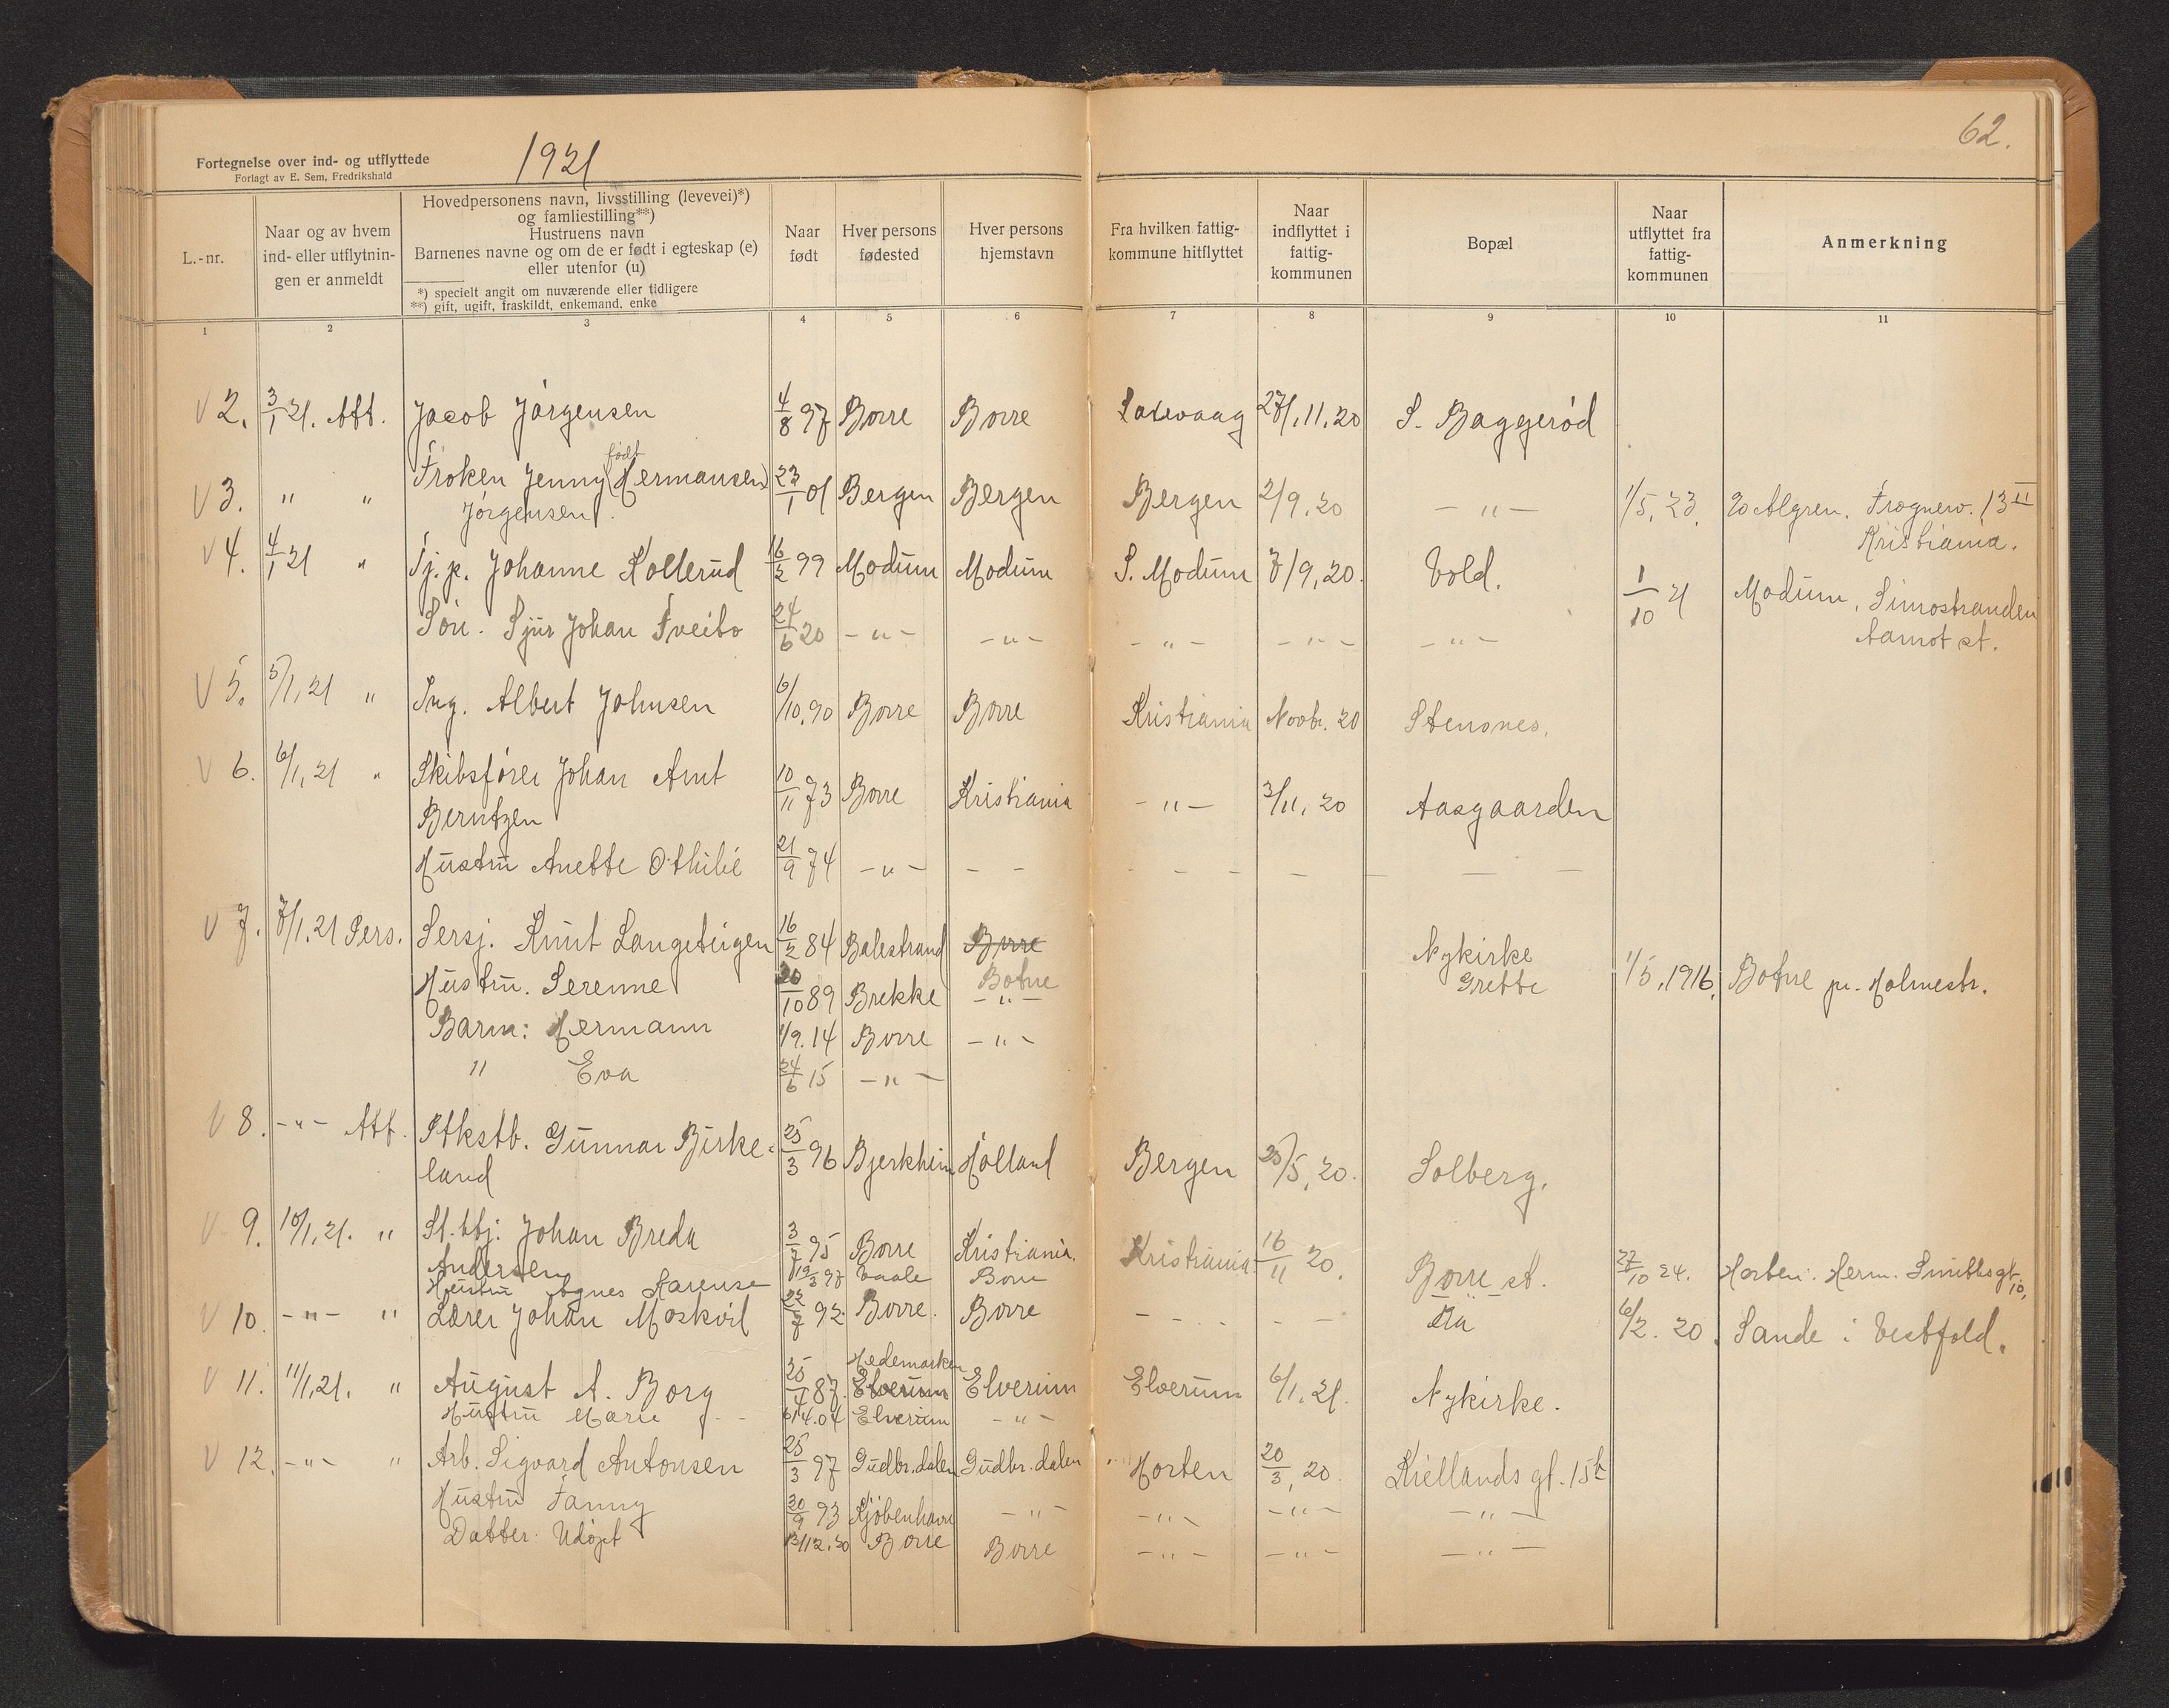 62.
Fortegnelse over ind- og utflyttede
Forlagt av E. Sem, Fredrikshald
1921
L.-nr.
Naar og av hvem
ind- eller utflytnin-
gen er anmeldt
Hovedpersonens navn, livsstilling (levevei)*)
og famliestilling**)
Hustruens navn
Barnenes navne og om de er født i egteskap (e)
eller utenfor (u)
*) specielt angit om nuværende eller tidligere
**) gift, ugift, fraskildt, enkemand, enke
Naar
født
Hver persons
fødested
Hver persons
hjemstavn
Fra hvilken fattig-
kommune hitflyttet
Naar
indflyttet i
fattig-
kommunen
Bopæl
Naar
utflyttet fra
fattig-
kommunen
Anmerkning
1 2 3 4 5 6 7 8 9 10 11
V 2. 3/1 21. Att. Jacob Jørgensen 4/8 97 Borre Borre Laxevaag 27/11.20 S. Baggerød
V 3. " " Frøken Jenny (født Hermansen) 23/1 01 Bergen Bergen Bergen 2/9.20 -"- 1/5.23. Frognerv. 13 II
Jørgensen. Kristiania.
V 4. 4/1 21 " Tj.p. Johanne Kollerud 16/2 99 Modum Modum S. Modum 7/9.20. Vold. 1/10 21 Modum, Simostranden
Søn. Sjur Johan Tveito 24/6 20 -"- -"- -"- -"- -"- Aamot st.
V 5. 5/1.21 " Ing. Albert Johnsen 6/10.90 Borre Borre Kristiania Novbr. 20 Stensnes.
V 6. 6/1.21 " Skibsfører Johan Arnt 10/11 73 Borre Kristiania -"- 3/11.20 Aasgaarden
Berntzen
Hustru Anette Othilie 21/9 74 -"- - - - - - - - - - -
V 7. 7/1.21 Pers. Sersj. Knut Langeteigen 16/2 84 Balestrand Borre Nykirke
Botne Grette 1/5.1916. Botne pr. Holmestr.
Hustru. Serenne 20/10 89 Brekke -"-
Barn: Hermann 1/9.14 Borre -"-
" Eva 24/6 15 -"-
V 8. -"- Att. Stkstb. Gunnar Birke- 25/3 96 Bjerkheim Holland Bergen 25/5.20. Solberg.
land
V 9. 10/1.21. " St.btj. Johan Breda 3/7 95 Borre Kristiania. Kristiania 16/11 20. Borre st. 27/10 24. Horten. Herm. Smithsgt. 10.
Andersen
Hustru Agnes 19/3 97 Vaale Borre
V 10. -"- " Lærer Johan Moskvil 22/7 92 Borre. Borre - - - - - 6/2. 20. Sande i Vestfold.
V 11. 11/1.21. " August A. Borg 25/4 87. Hedemarken Elverum Elverum Elverum 6/1.21. Nykirke.
Hustru Marie 6/4.04 Elverum -"-
V 12. -"- " Arb. Sigvard Antonsen 25/3 97 Gudbr.dalen Gudbr.dalen Horten 20/3.20. Kiellands gt. 15b
Hustru Fanny 20/9 93 Kjøbenhavn -"- -"- -"- -"-
Datter. Udøpt 13/12.20 Borre Borre -"- -"- -"-